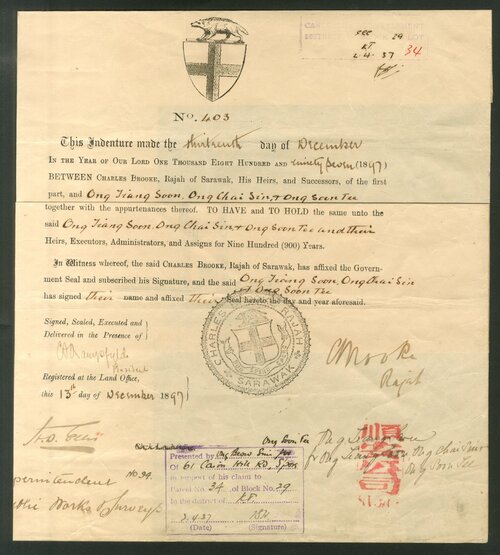 29
2.4.37
34
No. 403
This Indenture made the thirteenth day of December
In the Year of Our Lord One Thousand Eight Hundred and ninety seven (1897)
BETWEEN Charles Brooke, Rajah of Sarawak, His Heirs, and Successors, of the first
part, and Ong Tiang Soon, Ong Chai Sin & Ong Soon Tee
together with the appurtenances thereof. TO HAVE and TO HOLD the same unto the
said Ong Tiang Soon, Ong Chai Sin & Ong Soon Tee and their
Heirs, Executors, Administrators, and Assigns for Nine Hundred (900) Years.
In Witness whereof, the said Charles Brooke, Rajah of Sarawak, has affixed the Govern-
ment Seal and subscribed his Signature, and the said Ong Tiang Soon, Ong Chai Sin
& Ong Soon Tee
has signed their name and affixed their Seal hereto the day and year aforesaid.
Signed, Sealed, Executed and
Delivered in the Presence of
Resident
Registered at the Land Office,
this 13th day of December 1897
CHARLES RAJAH
SARAWAK
C Brooke
Rajah
Superintendent
Public Works & Surveys
No 99.
Ong Soon Tee
Ong Tiang Soon
Ong Chai Sin
Ong Soon Tee
Presented by Ong
Of 61 Cairn Hill Rd, S'pore
in support of his claim to
Parcel No. 34 of Block No. 29
in the district of K.T.
2.4.37
(Date) (Signature)